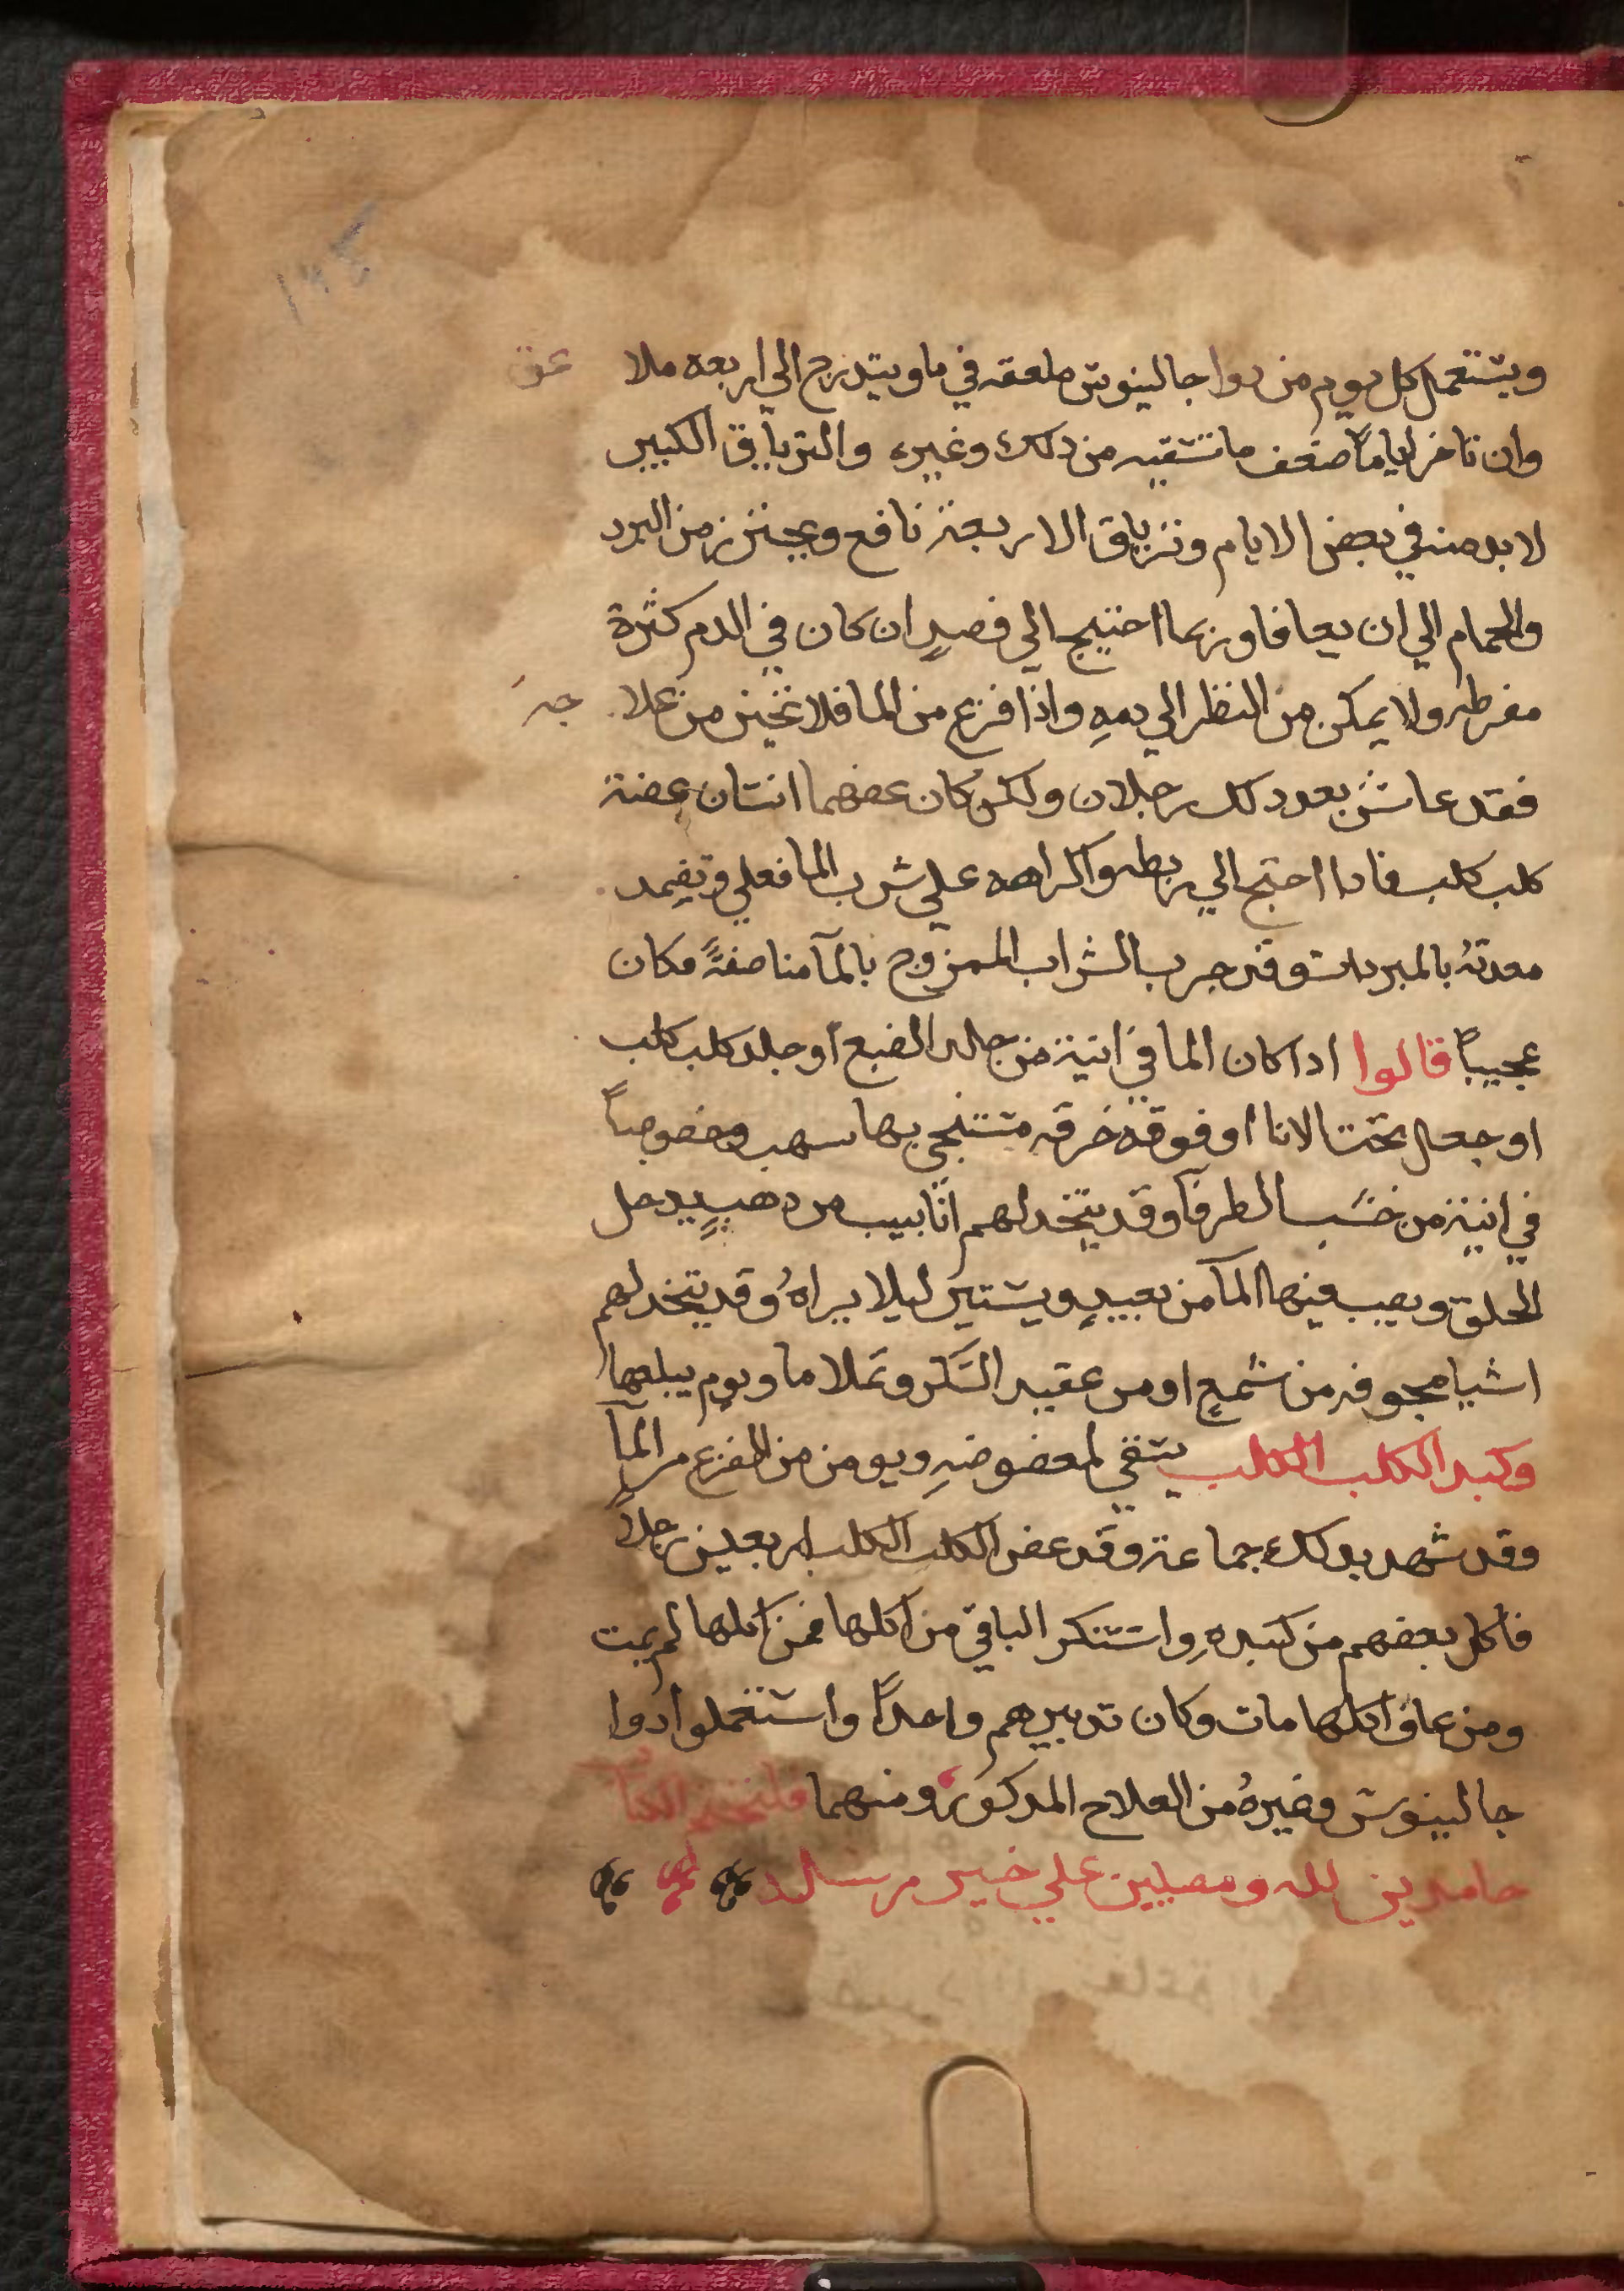 ١٢٤
ويستعمل كل يوم من دوا جالينوس ملعقه في ما ويتدرج الي اربعه ملا عق
وان تاخر اياماً ضعف ما تسقيه من ذلك وغيره والترياق الكبير
لا بد منه في بعض الايام وترياق الاربعة نافع ويحترز من البرد
والحمام الي ان يعافا وربما احتيج الي فصدٍ ان كان في الدم كثرة
مفرطه ولا يمكن من النظر الي دمهِ واذا فزع من الما فلا تخيز من علا جه
فقد عاش بعد دلك رجلان ولكن كان عضهما انسان عضة
كلب كلب فادا احتيج الي ربطه واكراهه علي شرب الما فعلي وتضمد
معدتهُ بالمبردات وقد جرب الشراب الممزوج بالمآ مناصفةً فكان
عجيباً قالوا ادا كان الما في انية من جلد الضبع او جلد كلب كلب
او جعل تحت الانا او فوقه خرقه مستنجي بها سهب وخصوصاً
في انية من خشب الطرفآ وقد يتخد لهم انابيب من دهبٍ يدخل
الحلق ويصب فيها المآ من بعيدٍ ويستتر ليلا يراهُ وقد يتخد لهم
اشيا مجوفه من شمعٍ او من عقيد السكر وتملا ما ويوم يبلعها
وكبد الكلب الكلب يسقي لمعضوضهِ ويومن من الفزع من المآ
وقد شهد بدلك جماعة وقد عض الكلب الكلب اربعين رجلاً
فاكل بعضهم من كبدهِ واستنكر الباقي من اكلها فمن اكلها لم يمت
ومن عاف اكلها مات وكان تدبيرهم واحداً واستعملوا دوا
جالينوس وغيرهُ من العلاج المدكور ومنهما فلنختم الكتاب
حامدين لله ومصلين علي خير مرسل